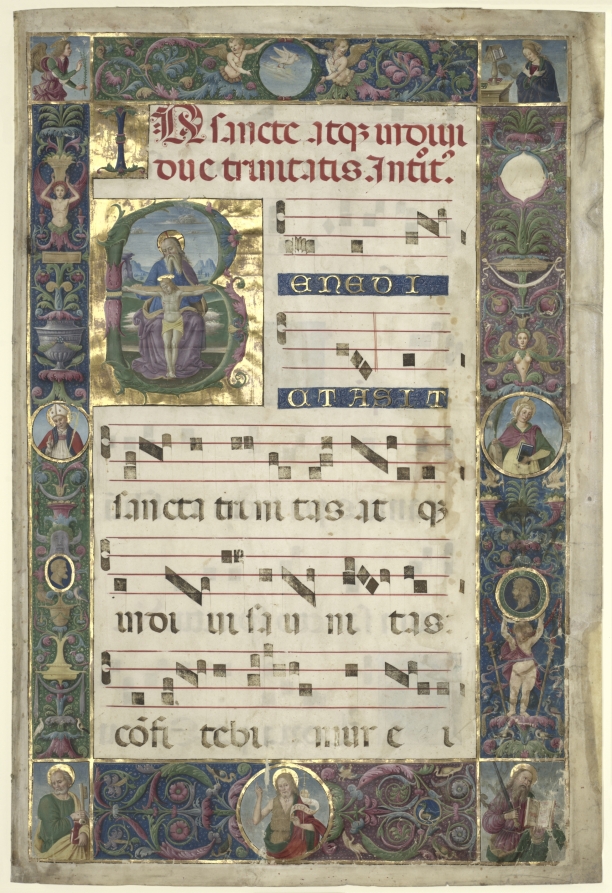 IN sancte atqȝ indiui
due trinitatis. Introit.
B ENEDI
CTA SIT
sancta trini tas at qȝ
indi ui sa u ni tas:
cōfi tebi mur e i